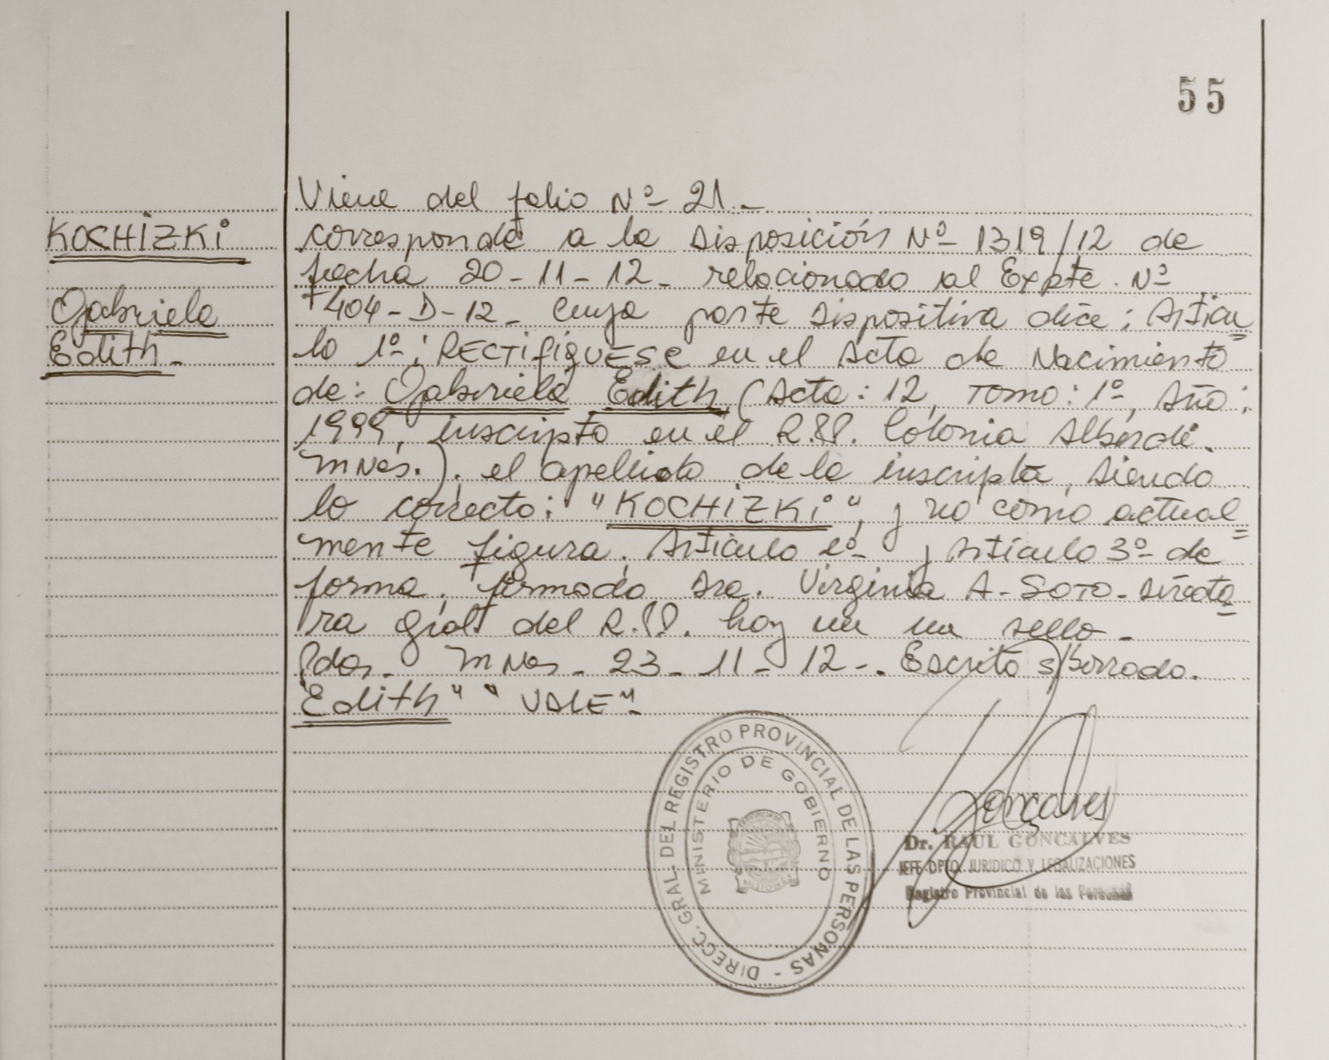 55
KOCHIZKI
Gabriela
Edith._
Viene del folio Nº 21._
corresponde a la Disposición Nº 1319/12 de
fecha 20-11-12_ relacionado al Expte. Nº
404-D-12_ Cuya parte dispositiva dice: Artícu=
lo 1º: RECTIFIQUESE en el Acta de Nacimiento
de: Gabriela Edith (Acta: 12, Tomo: 1º, Año:
1999, inscripta en el R.PP. Colonia Alberdi.
Mnes.). el apellido de la inscripta, siendo
lo correcto: "KOCHIZKI", y no como actual=
mente figura. Artículo 2º y Artículo 3º de
forma. firmado Dra. Virginia A. SOTO. Directo=
ra Gral del R.PP. hay un sello_
Pdas. Mnes. 23_11_12_. Escrito s/borrado.
Edith" " VALE"_
DIRECC. GRAL. DEL REGISTRO PROVINCIAL DE LAS PERSONAS -
MINISTERIO DE GOBIERNO
Goncalves
Dr. RAUL GONCALVES
JEFE DPTO. JURIDICO Y LEGALIZACIONES
Registro Provincial de las Personas